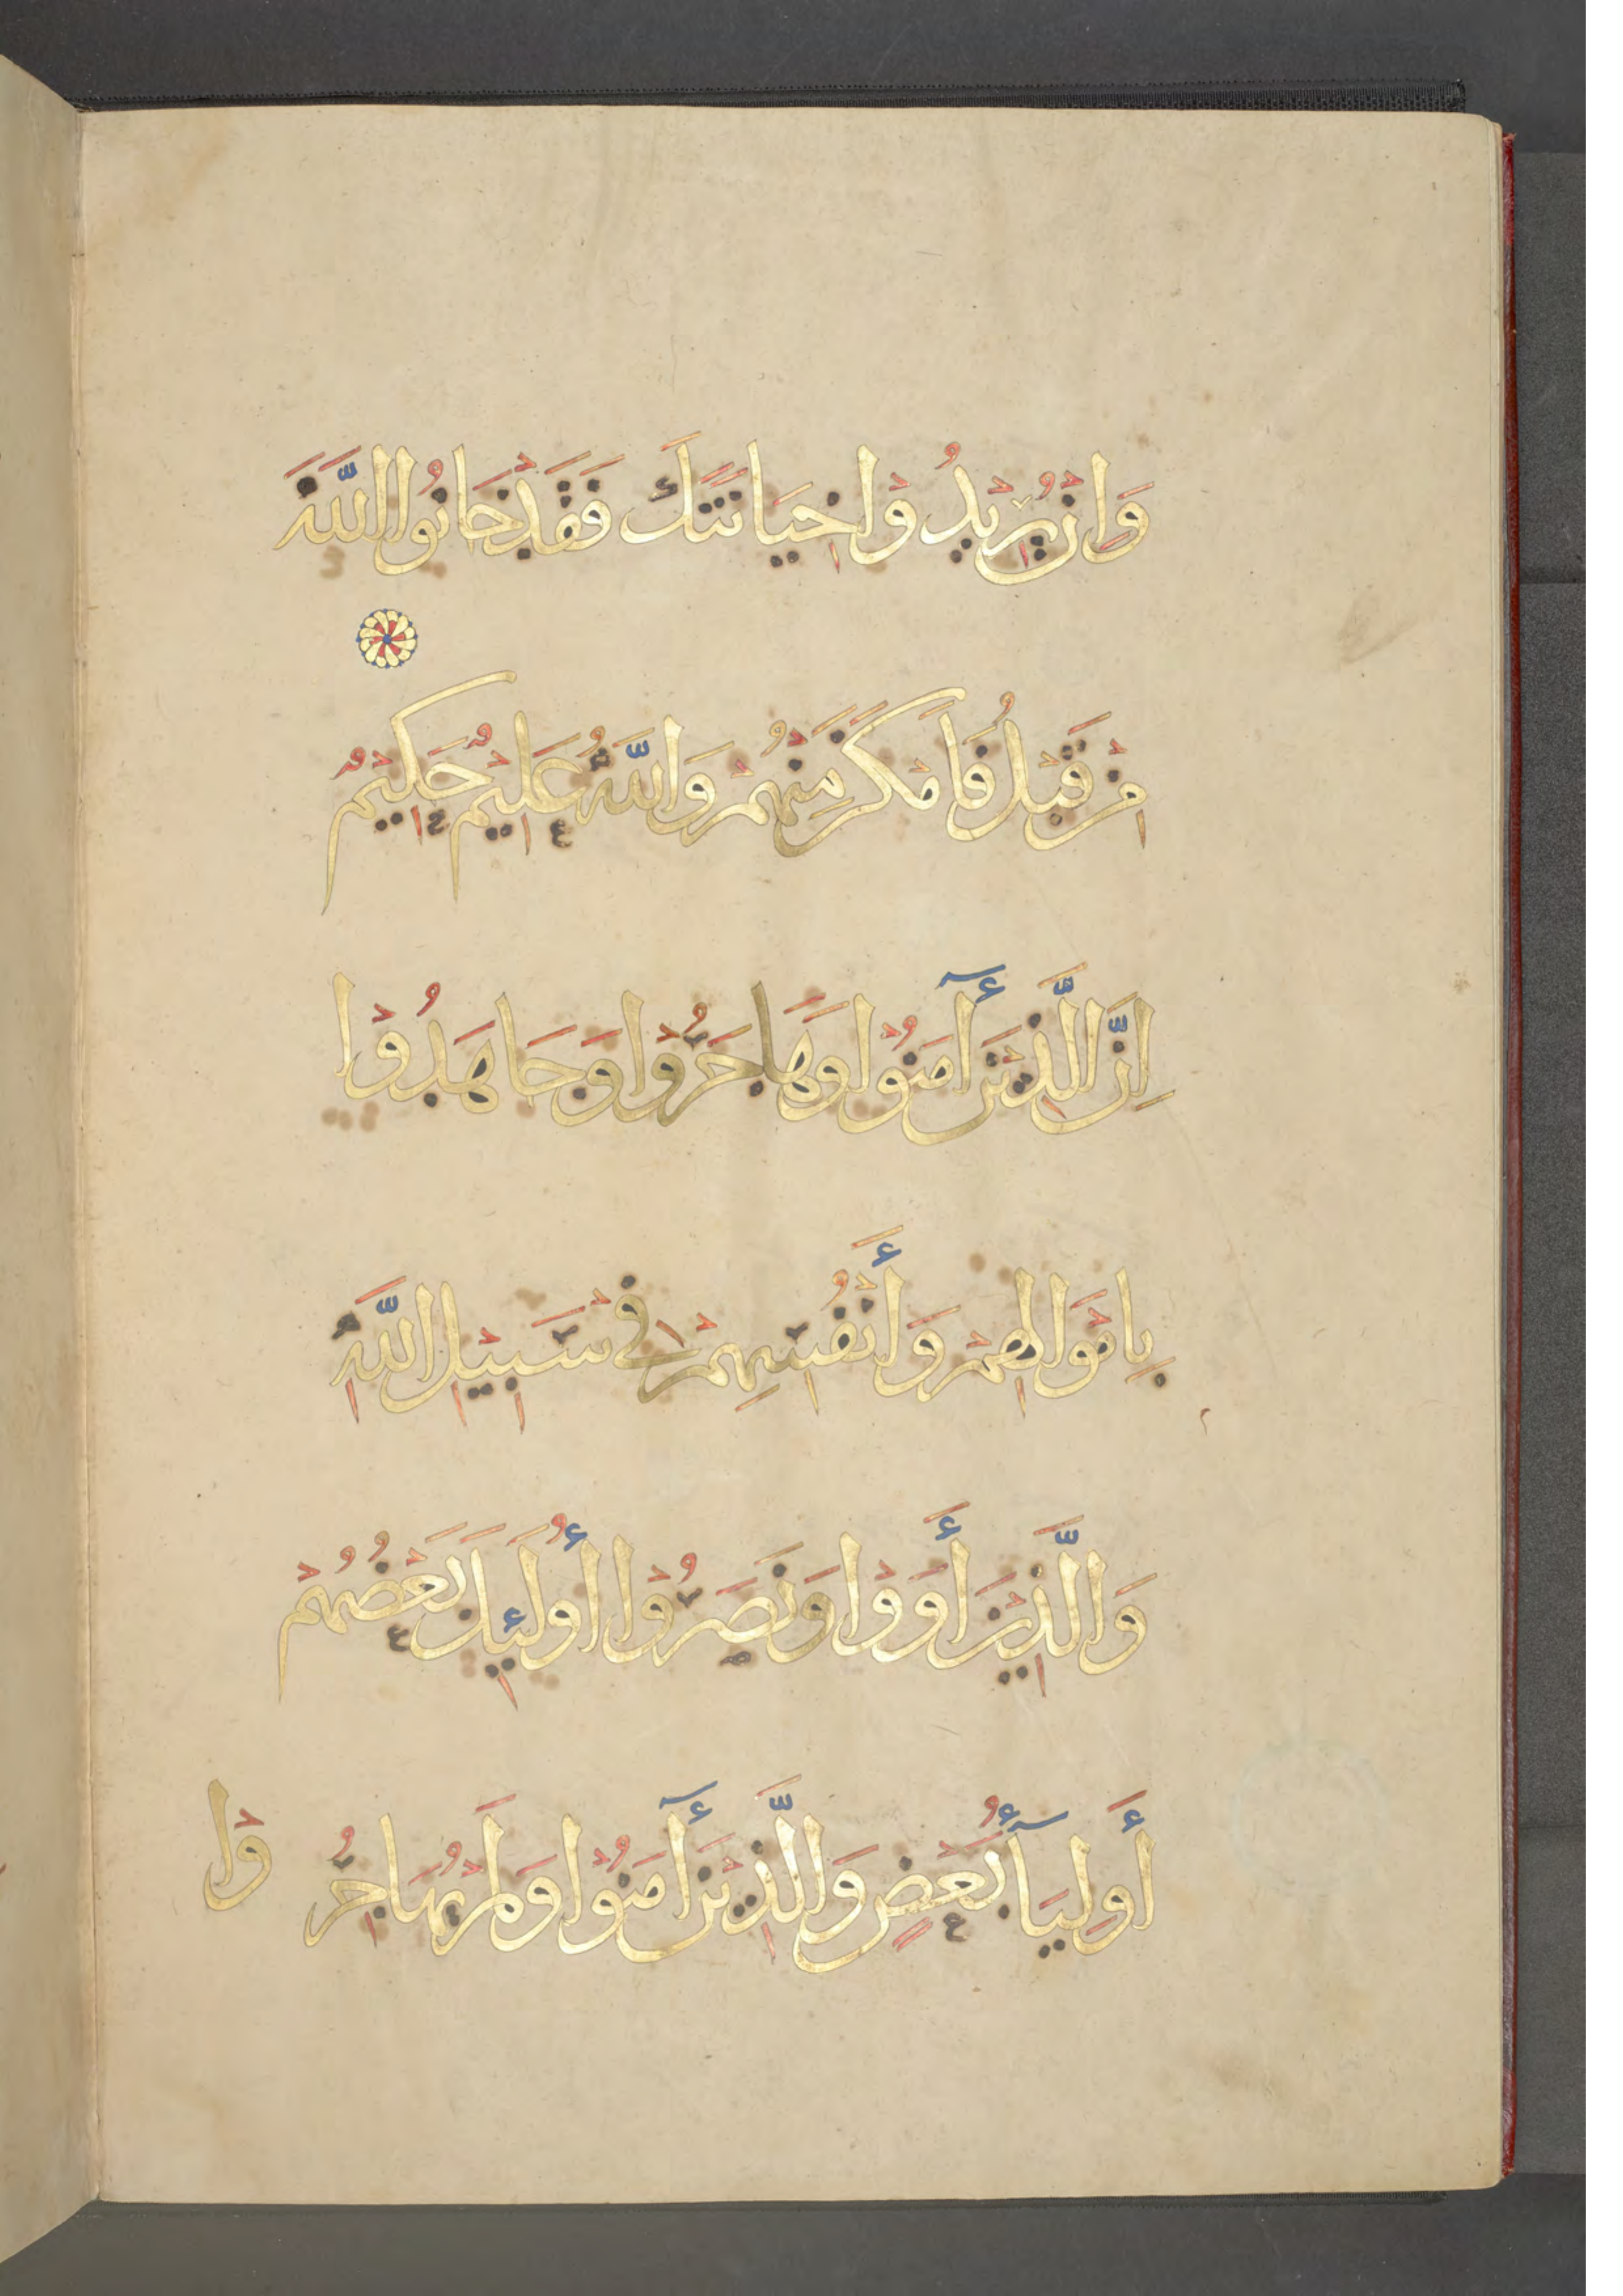 وَاِنْ يُرِيْدُوْا خِيَانَتَكَ فَقَدْ خَانُوا اللّٰهَ
مِنْ قَبْلُ فَاَمْكَنَ مِنْهُمْ وَاللّٰهُ عَلِيْمٌ حَكِيْمٌ
اِنَّ الَّذِيْنَ أٓمَنُوْا وَهَاجَرُوْا وَجَاهَدُوْا
بِاَمْوَالِهِمْ وَأَنْفُسِهِمْ فِيْ سَبِيْلِ اللّٰهِ
وَالَّذِيْنَ أَوَوْا وَنَصَرُوْا أُولَئِكَ بَعْضُهُمْ
أَوْلِيَآءُ بَعْضٍ وَالَّذِيْنَ أٓمَنُوْا وَلَمْ يُهَاجِرُوْا